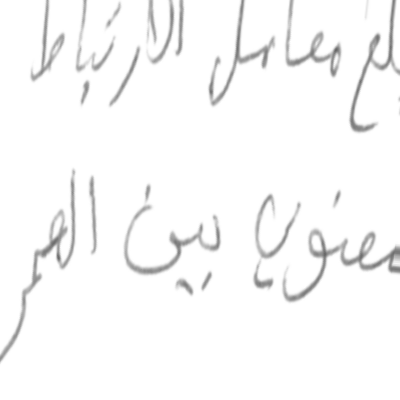 معامل الارتباط
معنوي بين العمر